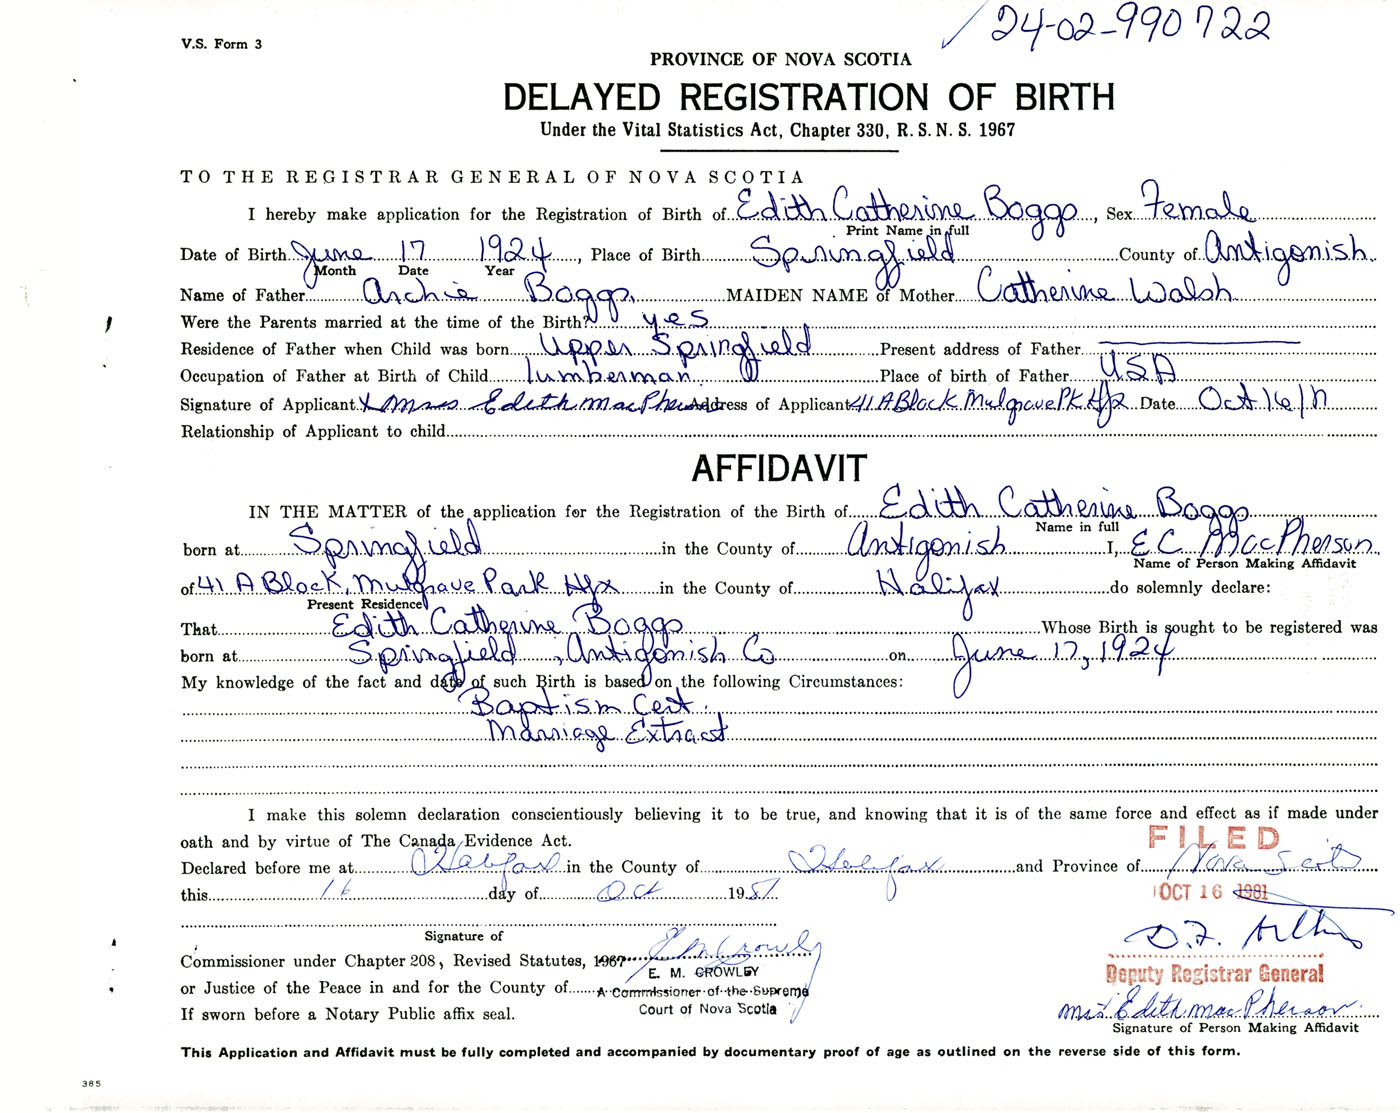 24-02-990722
V.S. Form 3
PROVINCE OF NOVA SCOTIA
DELAYED REGISTRATION OF BIRTH
Under the Vital Statistics Act, Chapter 330, R. S. N. S. 1967
TO THE REGISTRAR GENERAL OF NOVA SCOTIA
I hereby make application for the Registration of Birth of Edith Catherine Boggs, Sex Female
Print Name in full
Date of Birth June 17 1924, Place of Birth Springfield County of Antigonish
Month Date Year
Name of Father Archie Boggs MAIDEN NAME of Mother Catherine Walsh
Were the Parents married at the time of the Birth? yes
Residence of Father when Child was born Upper Springfield Present address of Father
Occupation of Father at Birth of Child lumberman Place of birth of Father USA
Signature of Applicant x Mrs Edith MacPherson Address of Applicant 41 A Block Mulgrave PK Hfx Date Oct 16/
Relationship of Applicant to child
AFFIDAVIT
IN THE MATTER of the application for the Registration of the Birth of Edith Catherine Boggs
Name in full
born at Springfield in the County of Antigonish I, E C MacPherson
Name of Person Making Affidavit
of 41 A Block, Mulgrave Park Hfx in the County of Halifax do solemnly declare:
Present Residence
That Edith Catherine Boggs Whose Birth is sought to be registered was
born at Springfield, Antigonish Co on June 17, 1924
My knowledge of the fact and date of such Birth is based on the following Circumstances:
Baptism Cert.
Marriage Extract
I make this solemn declaration conscientiously believing it to be true, and knowing that it is of the same force and effect as if made under
oath and by virtue of The Canada Evidence Act.
FILED
Declared before me at Halifax in the County of Halifax and Province of Nova Scotia
this 16 day of Oct 1981
OCT 16 1981
Signature of
E M Crowley
D. F.
Commissioner under Chapter 208, Revised Statutes, 1967
E. M. CROWLEY
Deputy Registrar General
or Justice of the Peace in and for the County of
A Commissioner of the Supreme
Court of Nova Scotia
Mrs Edith MacPherson
If sworn before a Notary Public affix seal.
Signature of Person Making Affidavit
This Application and Affidavit must be fully completed and accompanied by documentary proof of age as outlined on the reverse side of this form.
385